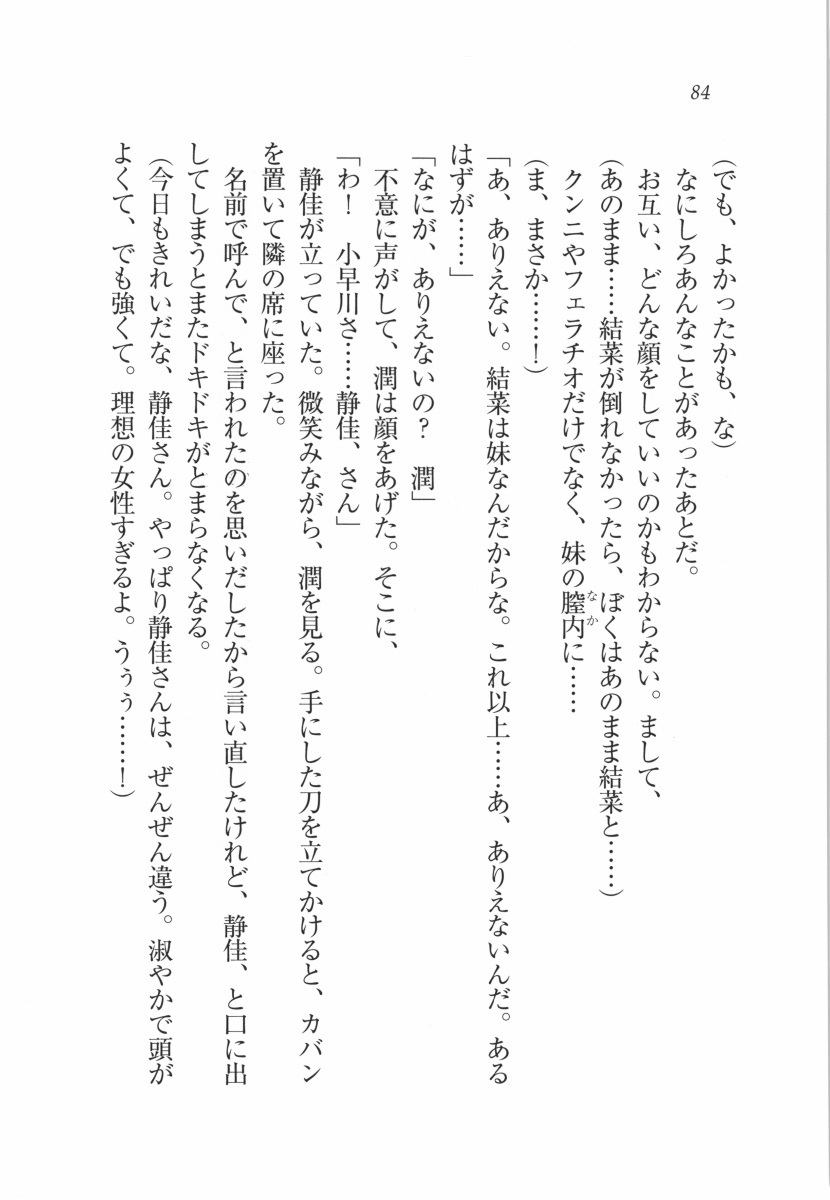 84
(でも、よかったかも、な)
なにしろあんなことがあったあとだ。
お互い、どんな顔をしていいのかもわからない。まして、
(ま、まさか……！)
「あ、ありえない。結菜は妹なんだからな。これ以上……あ、ありえないんだ。ある
はずが……」
「なにが、ありえないの？　潤」
不意に声がして、潤は顔をあげた。そこに、
「わ！　小早川さ……静佳、さん」
静佳が立っていた。微笑みながら、潤を見る。手にした刀を立てかけると、カバン
を置いて隣の席に座った。
名前で呼んで、と言われたのを思いだしたから言い直したけれど、静佳、と口に出
してしまうとまたドキドキがとまらなくなる。
(今日もきれいだな、静佳さん。やっぱり静佳さんは、ぜんぜん違う。淑やかで頭が
よくて、でも強くて。理想の女性すぎるよ。うぅぅ……！)